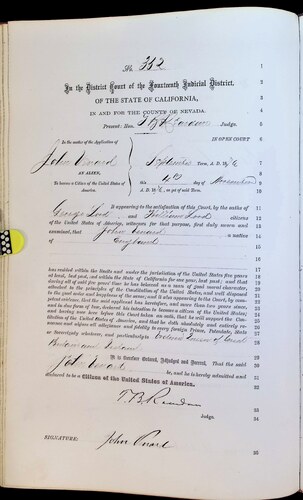 No. 352
1
In the District Court of the Fourteenth Judicial District,
2
OF THE STATE OF CALIFORNIA,
3
IN AND FOR THE COUNTY OF NEVADA.
4
Present: Hon. T. B. Reardon Judge.
5
In the matter of the Application of
IN OPEN COURT
6
John
Term, A. D. 187
7
AN ALIEN,
8
To become a Citizen of the United States of America.
day of November
9
A. D. of said Term.
10
It appearing to the satisfaction of this Court, by the oaths of
11
George Lord and William citizens
12
of the United States of America, witnesses for that purpose, first duly sworn and
13
examined, that John a native
14
of England
15
has resided within the limits and under the jurisdiction of the United States five years
at least, last past, and within the State of California for one year, last past; and that
during all of said five years' time he has behaved as a man of good moral character,
attached to the principles of the Constitution of the United States, and well disposed
to the good order and happiness of the same; and it also appearing to this Court, by com-
petent evidence, that the said applicant has heretofore, and more than two years since,
and in due form of law, declared his intention to become a citizen of the United States;
and having now here before this Court taken an oath, that he will support the Con-
stitution of the United States of America, and that he doth absolutely and entirely re-
nounce and abjure all allegiance and fidelity to every foreign Prince, Potentate, State
or Sovereignty whatever, and particularly to Victoria Queen of Great
Britain and Ireland
It is therefore Ordered, Adjudged and Decreed, That the said
John be, and he is hereby admitted and
declared to be a Citizen of the United States of America.
T. B. Reardon
Judge.
SIGNATURE: John